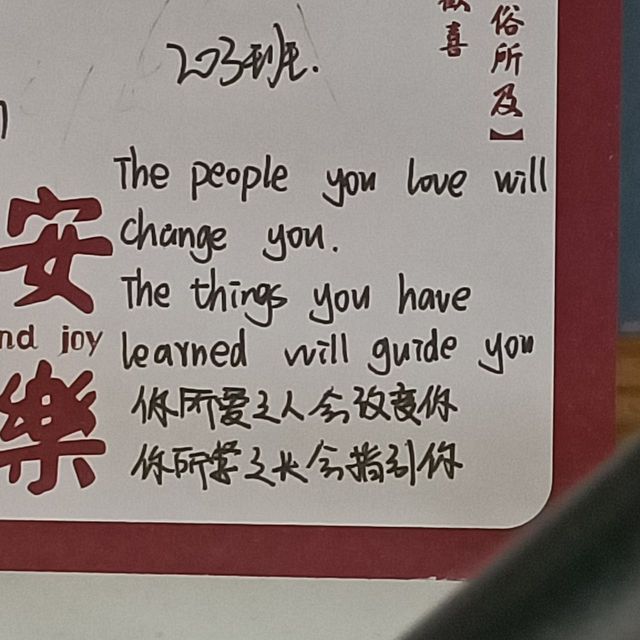 歡喜
俗所及】
203班.
The people you love will
change you.
The things you have
learned will guide you
你所爱之人会改变你
你所学之长会指引你
安
nd joy
樂